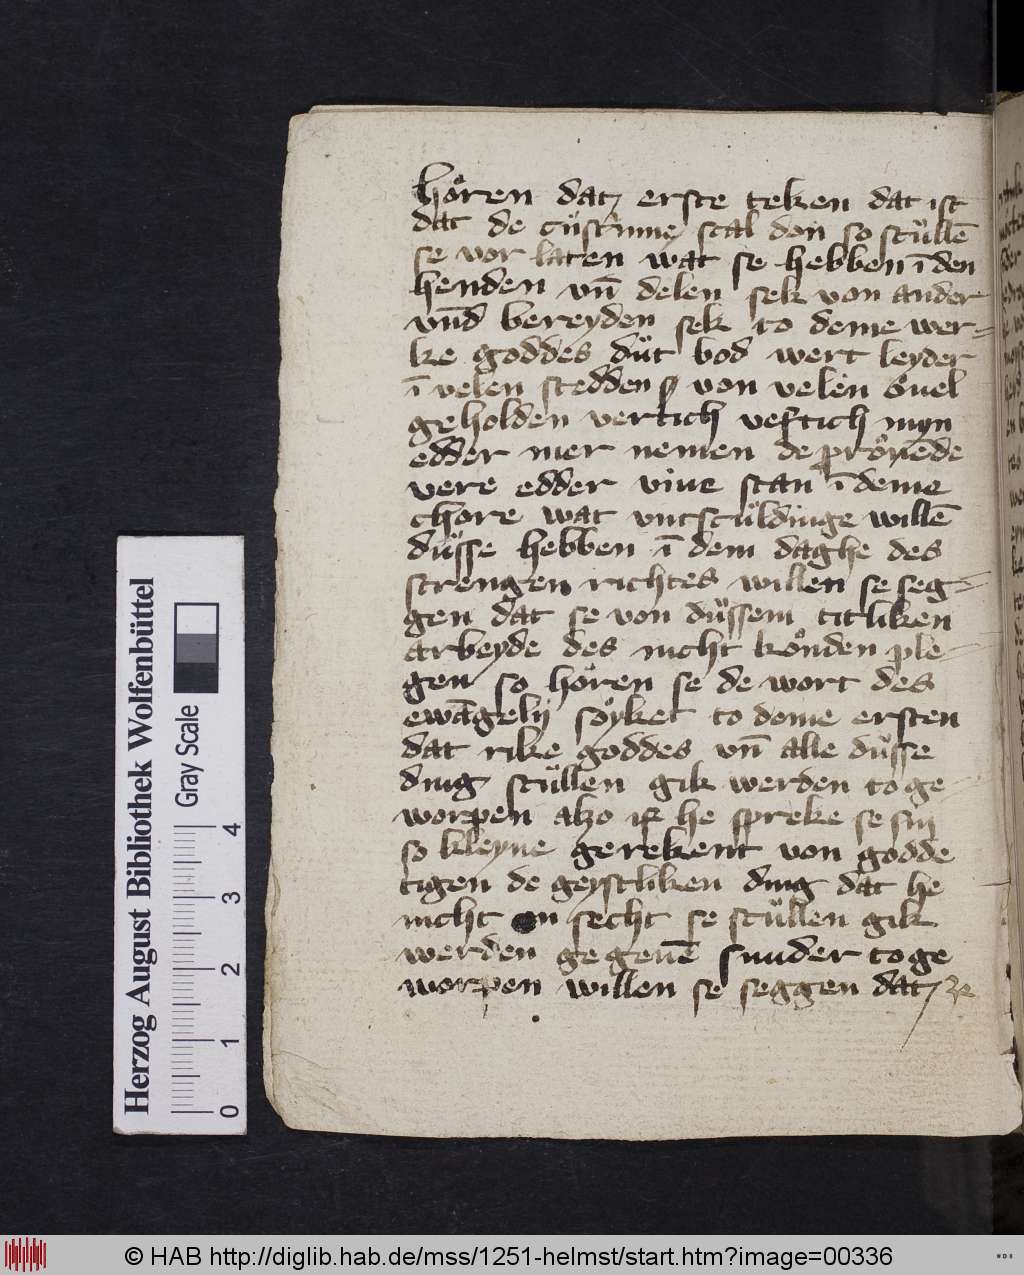 hören datz erste teken dat ist
dat de cüstinne scal don so scüllē
se vor laten wat se hebben ī den
henden vn̄ delen sek von ander
vnd bereyden sek to deme wer=
ke goddes düt bod wert leyder
ī velen stedden von velen ouel
geholden vertich veftich myn
edder mer nemen de pröuēde
vere edder viue stan ī deme
chore wat vntscüldinge willē
düsse hebben ī dem daghe des
strengen richtes willen se seg=
gen dat se von düssem titliken
arbeyde des nicht könden ple-
gen so hören se de wort des
ewāgelij söyket to deme ersten
dat rike goddes vn̄ alle düsse
ding scüllen gik werden to ge-
worpen alzo he spreke se sin
so kleyne gerekent von godde
tigen de geystliken ding dat he
nicht en secht se scüllen gik
werden ge geuē sunder to ge
worpen willen se seggen datz ze
Herzog August Bibliothek Wolfenbüttel
Gray Scale
0 1 2 3 4
© HAB http://diglib.hab.de/mss/1251-helmst/start.htm?image=00336